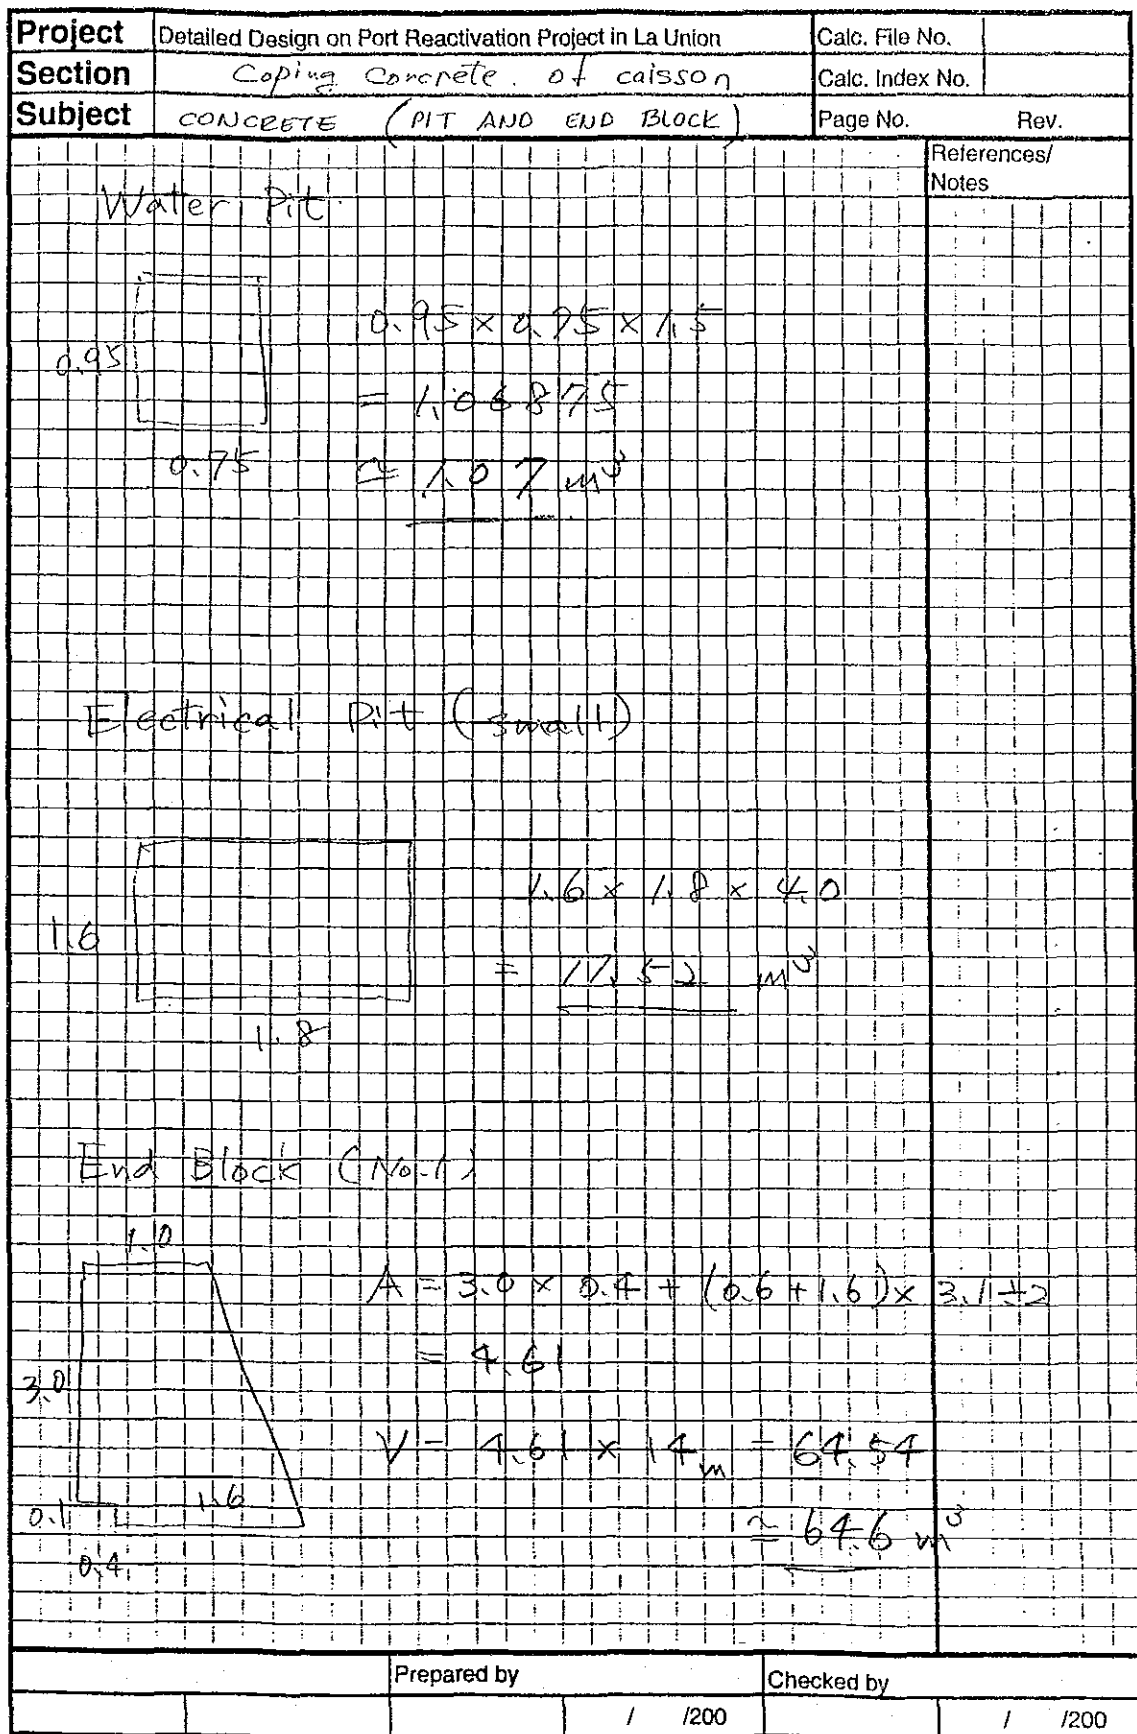 Project Detailed Design on Port Reactivation Project in La Union Calc. File No.
Section Coping Concrete. of caisson Calc. Index No.
Subject CONCRETE (PIT AND END BLOCK) Page No. Rev.
References/
Notes
Water Pit
0.95 × 0.75 × 1.5
0.95
= 1.06875
0.75
≃ 1.07 m³
Electrical Pit (small)
1.6 × 1.8 × 4.0
1.6
= 11.52 m³
1.8
End Block (No.1)
1.0
A = 3.0 × 0.4 + (0.6 + 1.6) × 3.1 ÷ 2
= 4.61
3.0
V = 4.61 × 14m = 64.54
1.6
0.1
≃ 64.6 m³
0.4
Prepared by Checked by
/ /200 / /200